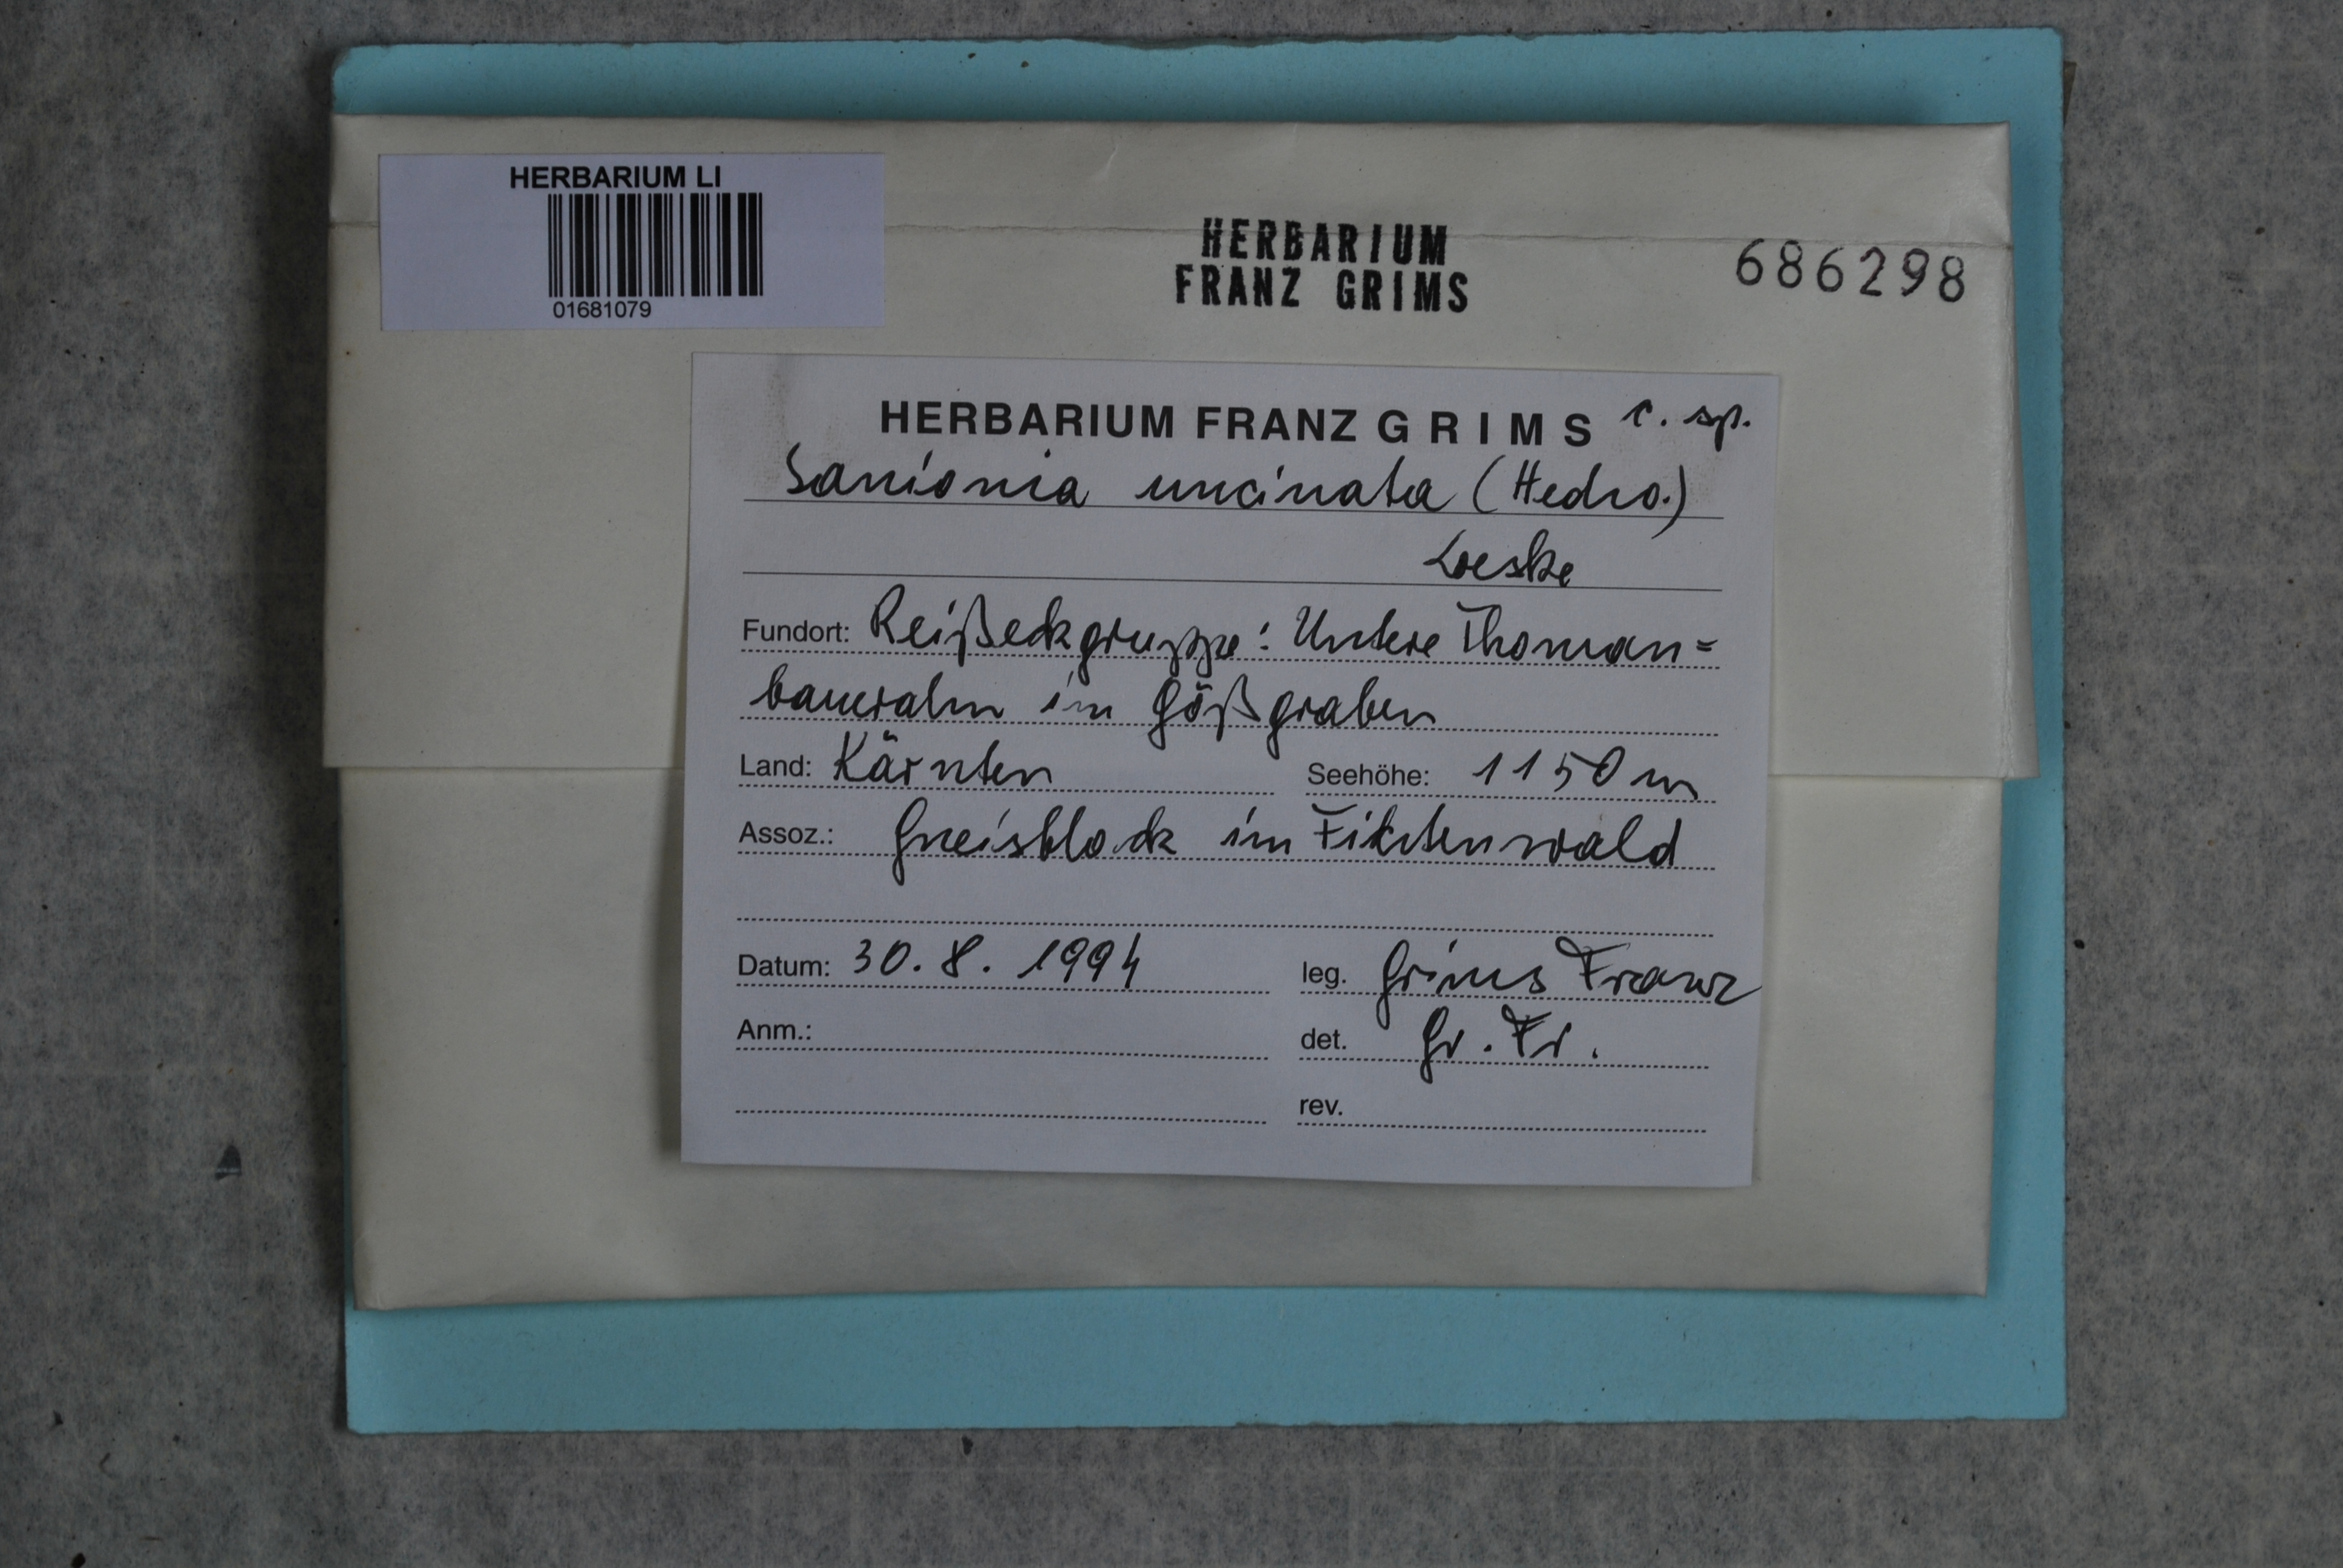 HERBARIUM LI
01681079
HERBARIUM
FRANZ GRIMS
686298
HERBARIUM FRANZ GRIMS c. sp.
Sanionia uncinata (Hedw.)
Loeske
Fundort: Reißeckgruppe: Untere Thoman=
baueralm im Gößgraben
Land: Kärnten Seehöhe: 1150 m
Assoz.: Gneisblock im Fichtenwald
Datum: 30. 8. 1994 leg. Grims Franz
Anm.: det. Gr. Fr.
rev.